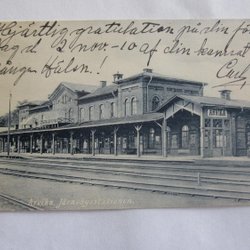 Hjärtlig gratulation på din fö
dag d 2 nov.-10 af din kamrat
många Hälsn!
ARVIKA
Arvika. Järnvägsstationen.